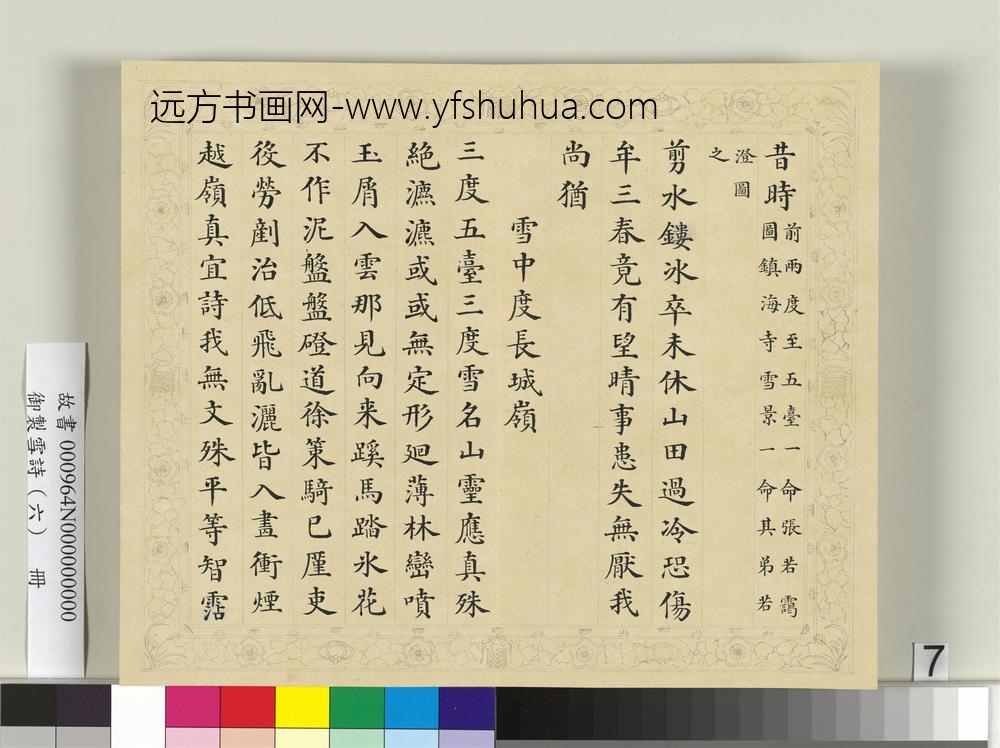 远方书画网-www.yfshuhua.com
昔時
前兩度至五臺一命張若靄
圖鎮海寺雪景一命其弟若
澄圖
之
剪水鏤冰卒未休山田過冷恐傷
牟三春竟有望晴事患失無厭我
尚猶
雪中度長城嶺
三度五臺三度雪名山靈應真殊
絕瀌瀌或或無定形廻薄林巒噴
玉屑入雲那見向来蹊馬踏氷花
不作泥盤盤磴道徐策騎已廑吏
役勞剷治低飛亂灑皆入畫衝煙
越嶺真宜詩我無文殊平等智霑
故書 000964N000000000
御製雪詩(六) 冊
7